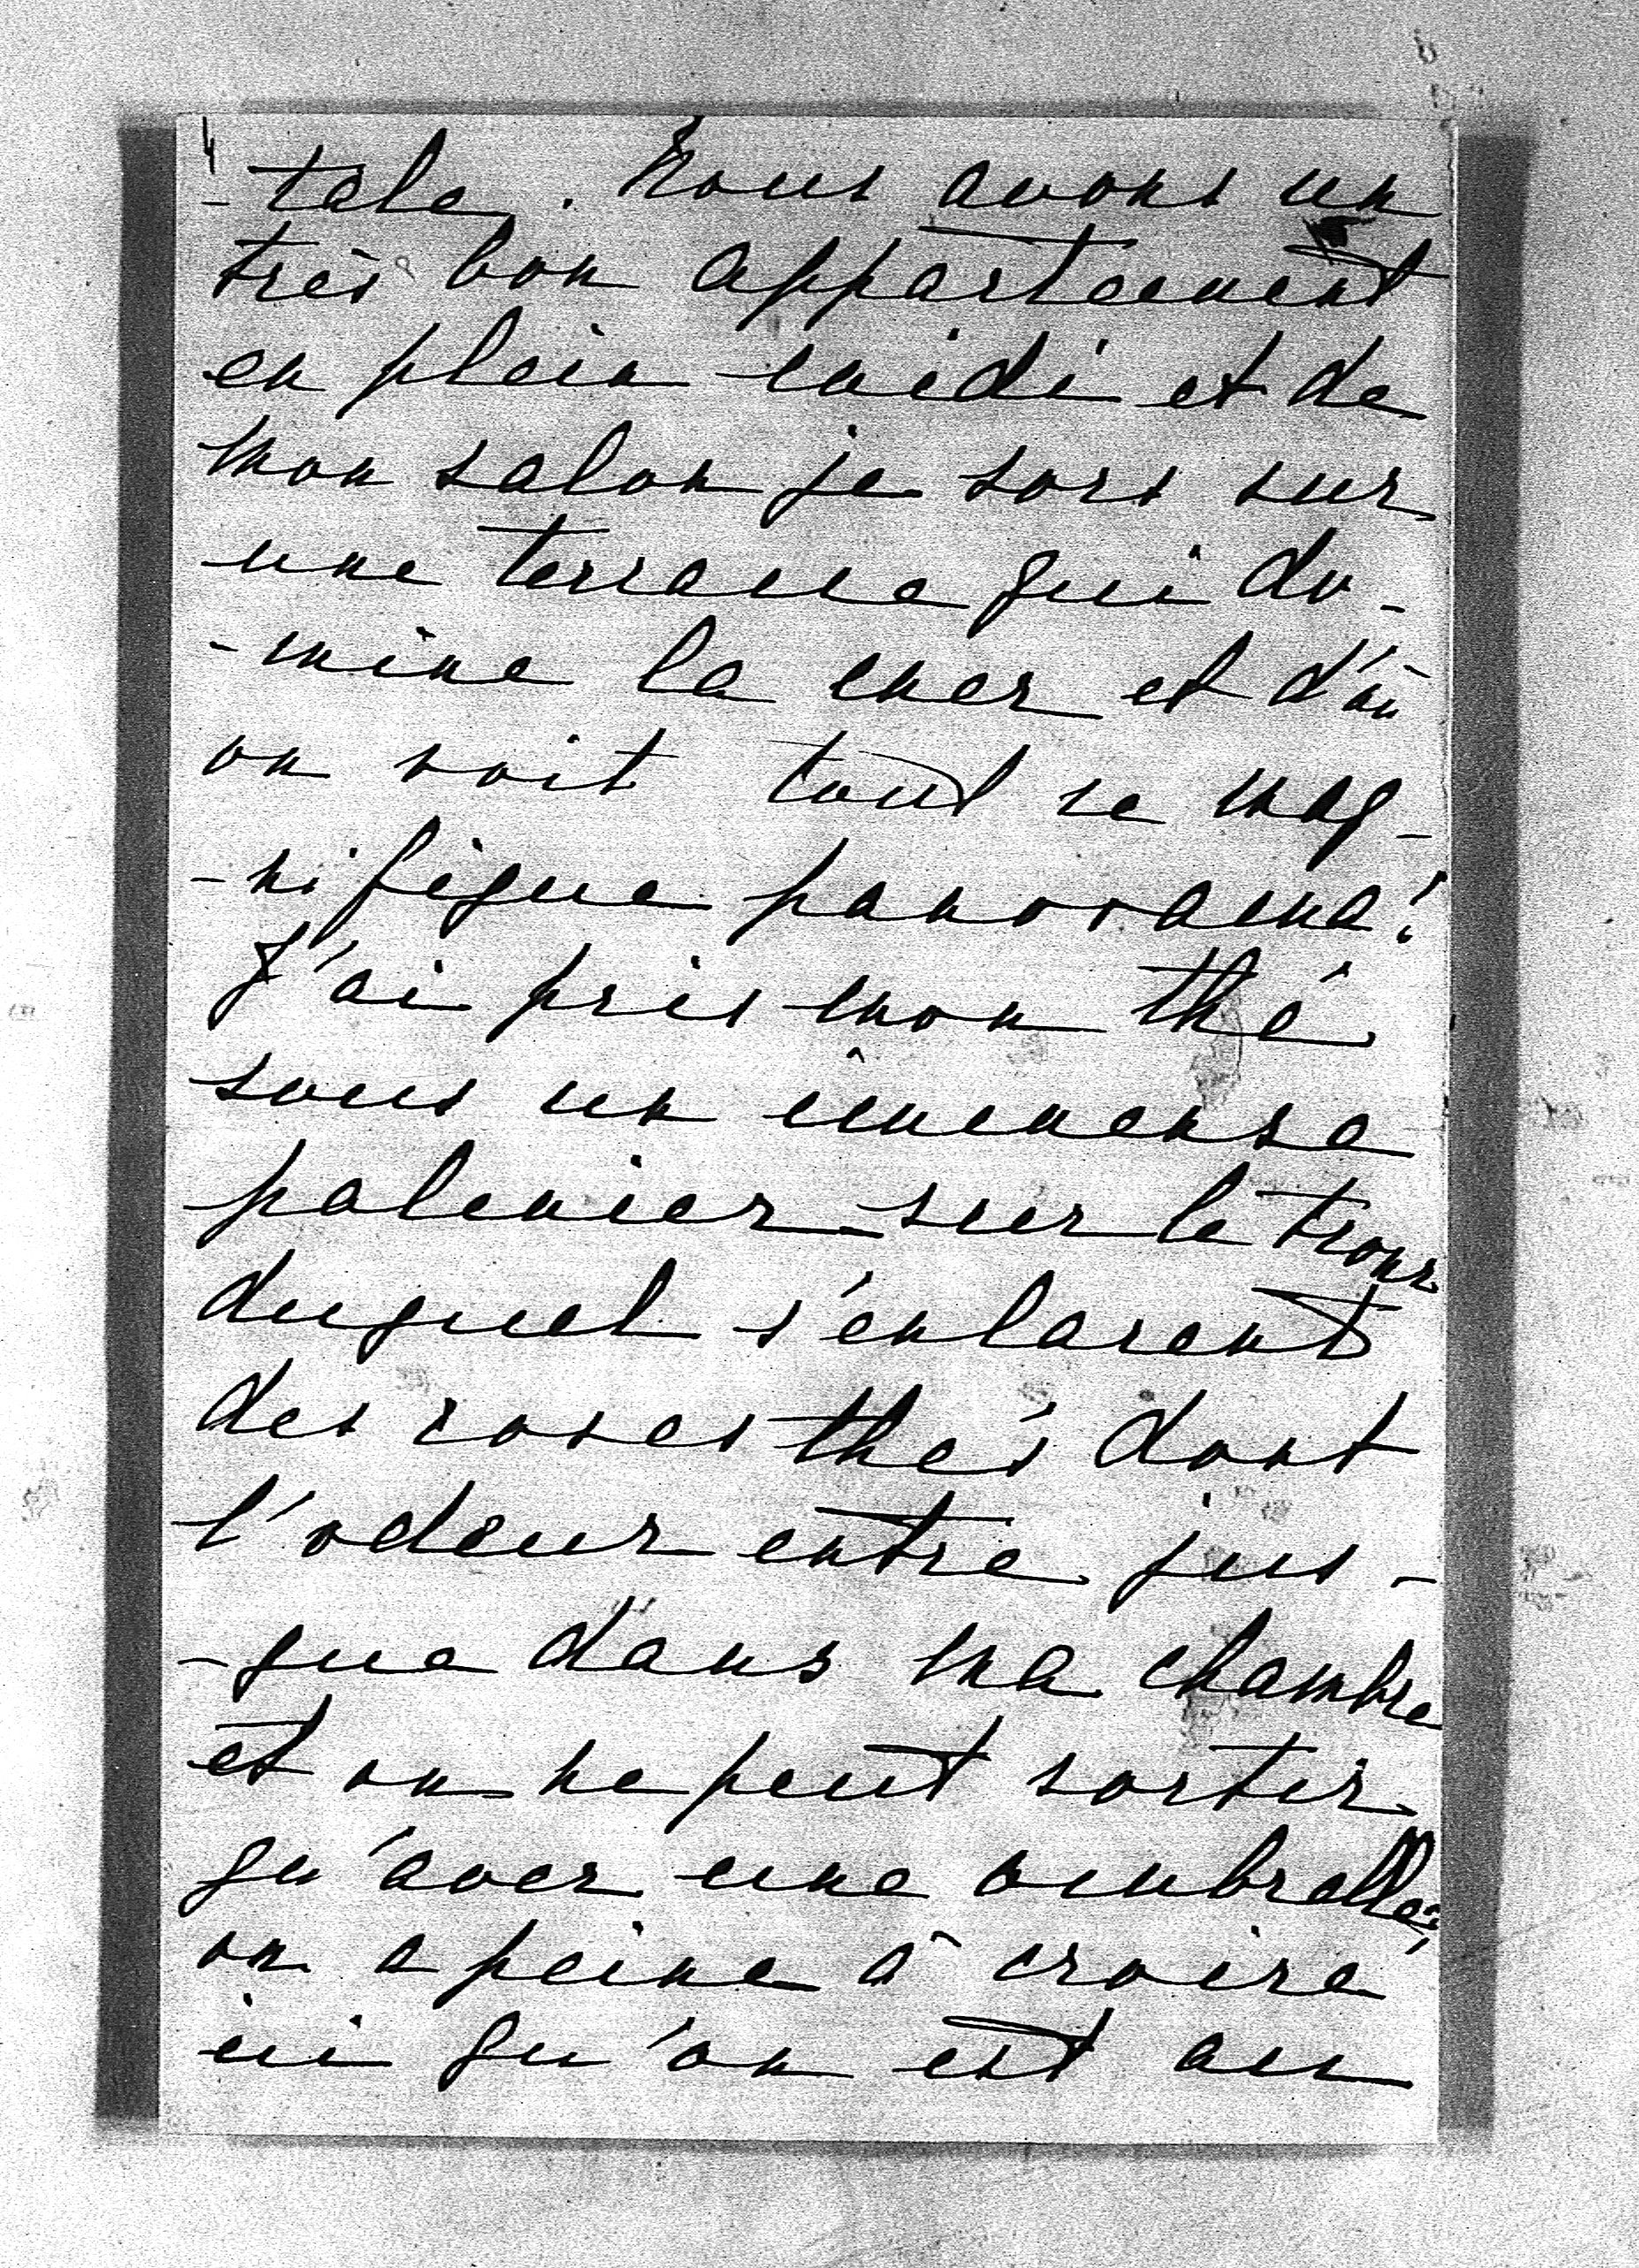 4
-tale. Nous avons un
très bon appartement
en plein midi et de
mon salon je sors sur
une terrasse qui do-
-mine la mer et d'où
on voit tout ce mag-
-nifique panorama!
J'ai pris mon thé
sous un immense
palmier sur le tronc
duquel s'enlacent
des roses thés dont
l'odeur entre jus-
-que dans ma chambre
et on ne peut sortir
qu'avec une ombrelle;
on a peine à croire
ici qu'on est au